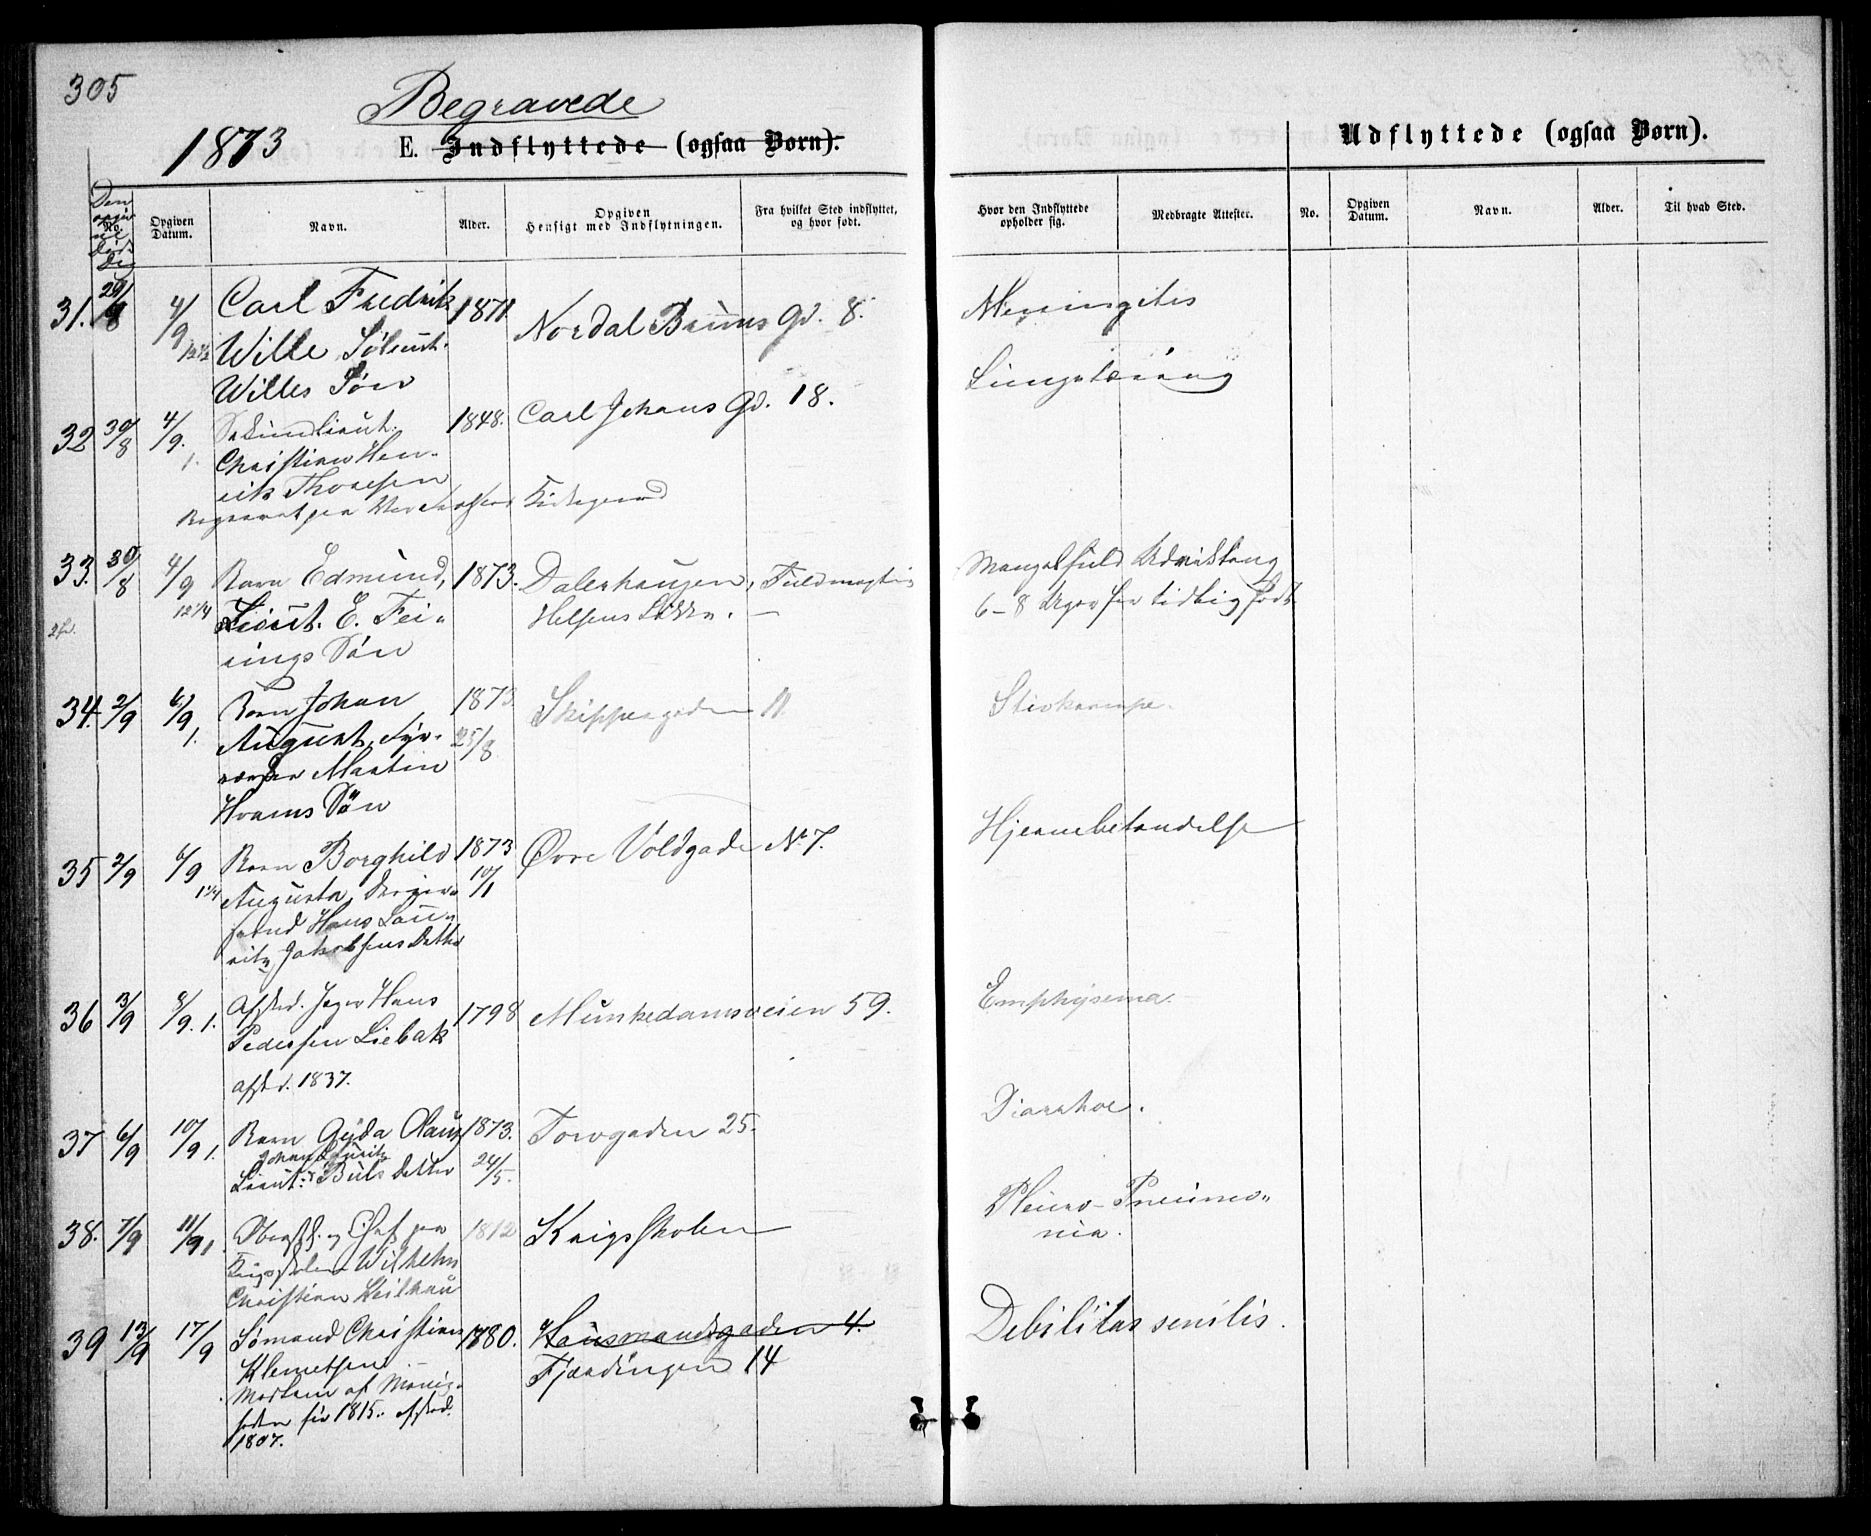 305
Begravede
1873 E. Indflyttede (ogsaa Børn).
Udflyttede (ogsaa Børn).
Den
No.
Opgiven Datum.
Navn.
Alder.
Opgiven Hensigt med Indflytningen.
Fra hvilket Sted indflyttet, og hvor født.
Hvor den Indflyttede opholder sig.
Medbragte Attester.
No.
Opgiven Datum.
Navn.
Alder.
Til hvad Sted.
31. 29/8 4/9 12½ Carl Fredrik 1871. Nordal Bruns Gd. 8. Meningitis
Wille
Willes Søn
32 30/8 4/9. 1. Sekundlieut. 1848. Carl Johans Gd. 18.
Christian Hen-
rik Thoresen
Begravet paa Vor Frelsers Kirkegaard
33. 30/8 4/9 12¼ Barn Edmund, 1873. Fuldmægtig Mangelfuld Udvikling
Lieut. E. Fei-
nings Søn
6-8 Uger for tidlig født
34. 2/9 6/9 1. Barn Johan 1873 25/8 Skippergaden 11 Stivkrampe.
August,
Martin
Hvams Søn
35 2/9 6/9 1¼ Barn Borghild 1873 10/1 Øvre Voldgade No 7. Hjernebetændelse
Augusta,
Hans Lau-
ritz Jakobsens Datter
36 3/9 8/9. 1. Afsked. Jæger Hans 1798 Munkedamsveien 59. Emphysema.
Pedersen Liebak
afsk. 1837.
37 6/9 10/9 1. Barn Gyda 1873. 24/5. Torvgaden 25. Diarrhoe.
Johan Lauritz
Lieut. Buls Datter
38. 7/9 11/9 1. Oberstl. og Chef paa 1812 Krigsskolen Pleuro-Pneumo-
nia.
Krigsskolen Wilhelm
Christian Keilhau
39 13/9 17/9 Sømand Christian 1780. Hausmandsgaden 4. Debilitas senilis.
Klemetsen.
Fjerdingen 14
før 1815. afsked.
1807.